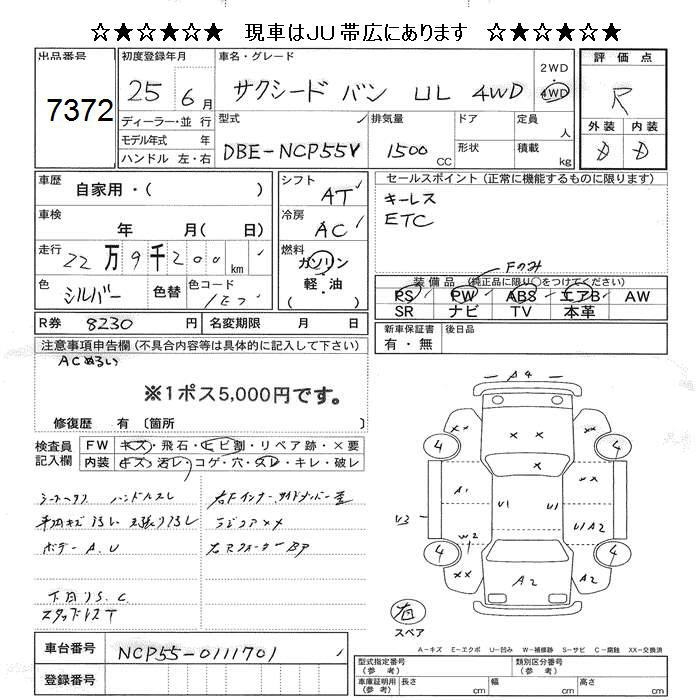 ☆★☆★☆★ 現車はJU帯広にあります ☆★☆★☆★
出品番号 初度登録年月 車名・グレード 2WD 評価点
7372 25年 6月 サクシード バン UL 4WD 4WD R
ディーラー・並行 型式 排気量 ドア 定員 人 外装 内装
モデル年式 年 DBE-NCP55V 1500 CC 形状 積載 kg D D
ハンドル 左・右
車歴 自家用・( ) シフト AT セールスポイント(正常に機能するものに限ります)
車検 年 月(日) 冷房 AC キーレス
ETC
走行 22万9千200km 燃料 ガソリン Fのみ
色 シルバー 色替 色コード 1E7 軽・油 装備品(純正品に限り○をつけてください)
PS PW ABS エアB AW
SR ナビ TV 本革
R券 8230円 名変期限 月 日 新車保証書 後日品
有・無
注意事項申告欄(不具合内容等は具体的に記入して下さい)
ACぬるい
※1ポス5,000円です。
修復歴 有 〔箇所 〕
検査員記入欄 FW キズ・飛石・ヒビ割・リペア跡・×要
内装 キズ・汚レ・コゲ・穴・スレ・キレ・破レ
ハンドルスレ
ボデー A.U
下回りS.C.
スタッドレスT
A4
XX XX
4 4
X X
X
A1 U1 U1 U1 A2
U3
4 W2 4
XX A2 XX
右
スペア
A-キズ E-エクボ U-凹み W-補修跡 S-サビ C-腐蝕 XX-交換済
車台番号 NCP55-0111701
登録番号
型式指定番号(参考) 類別区分番号(参考)
車庫証明用(参考) 長さ cm 幅 cm 高さ cm